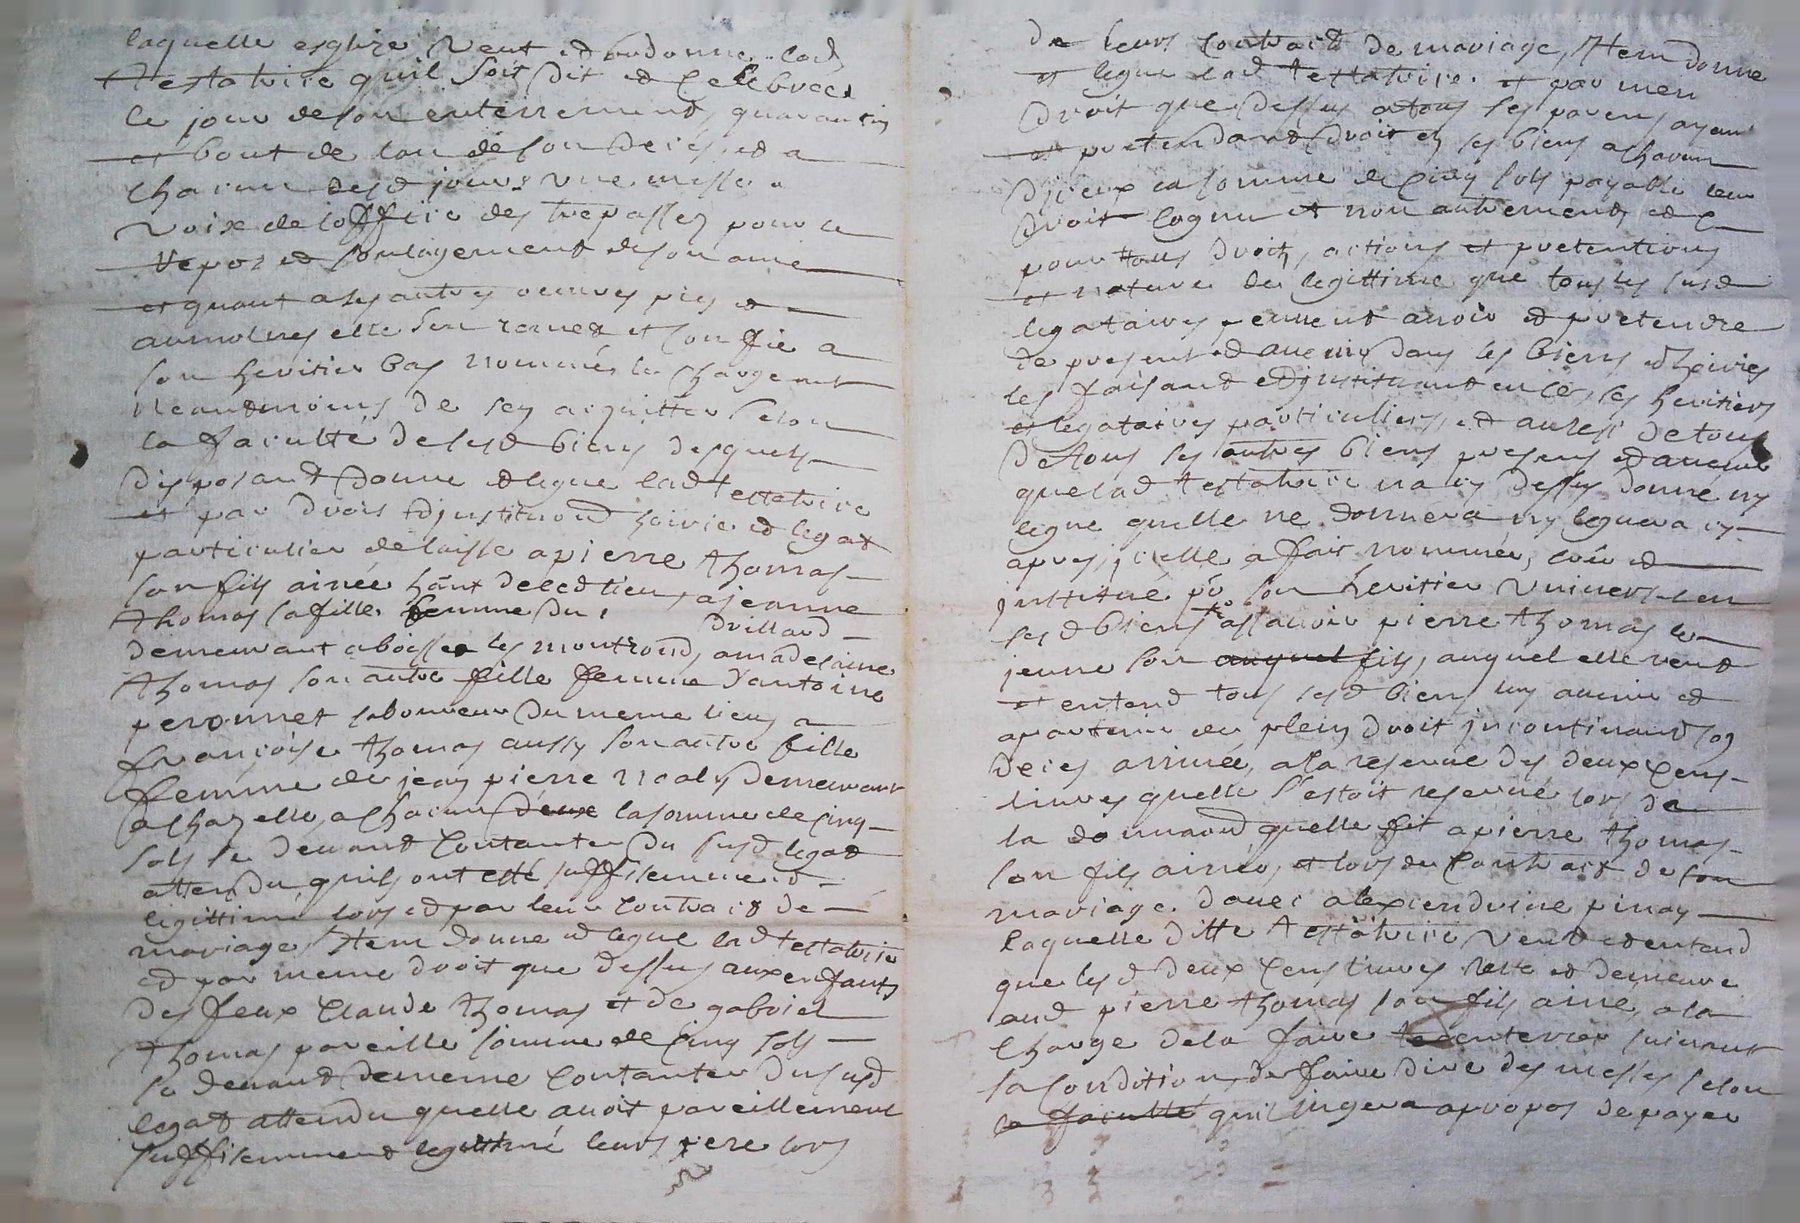 laquelle esglize veut et ordonne lad
testatrice quil soit dit et celebrée
le jour de son enterrement, quarantin
et bout de lan de son deces, et a
chacun desd jours une messe a
voix de loffice des trepassez pour le
repoz et soulagement de son ame
et quant a ses autres oeuvres pies et
aumosnes elle sen remet et confie a
son heritier bas nommé le chargeant
neantmoins de sen acquitter selon
la faculté de sesd biens desquels
disposant donne et legue lad testatrice
et par droit dinstitution hoirie et legat
particulier delaisse a pierre thomas
son fils ainée hant dececd lieu, a jeanne
thomas sa fille femme du drillard
demeurant a boisset les montrond, a madelaine
thomas son autre fille femme dantoine
peronnet laboureur du meme lieu, a
françoise thomas aussy son autre fille
femme de jean pierre demeurant
a chazelle, a chacun deux la somme de cinq
sols se devant contanter du susd legat
attendu quils ont esté suffisemment
legittimé lors et par leur contract de
mariage, Item donne et legue lad testatrice
et par meme droit que dessus aux enfants
des feux Claude thomas et de gabriel
thomas pareille somme de cinq sols
se devant de meme contanter du susd
legat attendu quelle avoit pareillement
suffisemment legittimé leurs pere lors
de leurs contract de mariage, Item donne
et legue lad testatrice et par mem
droit que dessus a tous ses parens ayant
et pretendant droit en ses biens a chacun
diceux la somme de cinq sols payable leur
droit cognu et non autrement, et ce
pour tous droits, actions et pretentions
et nature de legittime que tous les susd
legataires peuvent avoir et pretendre
de present et avenir dans les biens et hoiries
les faisant et instituant en ce, ses heritiers
et legataires particuliers, et au resi de tous
de tous ses autres biens presens et avenir
que lad testatrice na cy dessus donné ny
legue quelle ne donnera ny leguera cy
apres, icelle a fait nommée, créé et
institué po son heritier universel en
sesd biens assavoir pierre thomas le
jeune son auquel fils, auquel elle veut
et entend tous sesd biens luy avenir et
apartenir de plein droit incontinant son
deces arrivée, a la reserve des deux cens
livres quelle sestoit reservé lors de
la donnaond quelle fit a pierre thomas
son fils ainée, et lors du contract de son
mariage davec alexiendrine pinay
laquelle ditte testatrice veut et entend
que lesd deux cens livres reste et demeure
aud pierre thomas son fils aine, a la
charge de la faire enterrer suivant
sa condition, de faire dire des messes selon
la faculté quil jugera apropos de payer